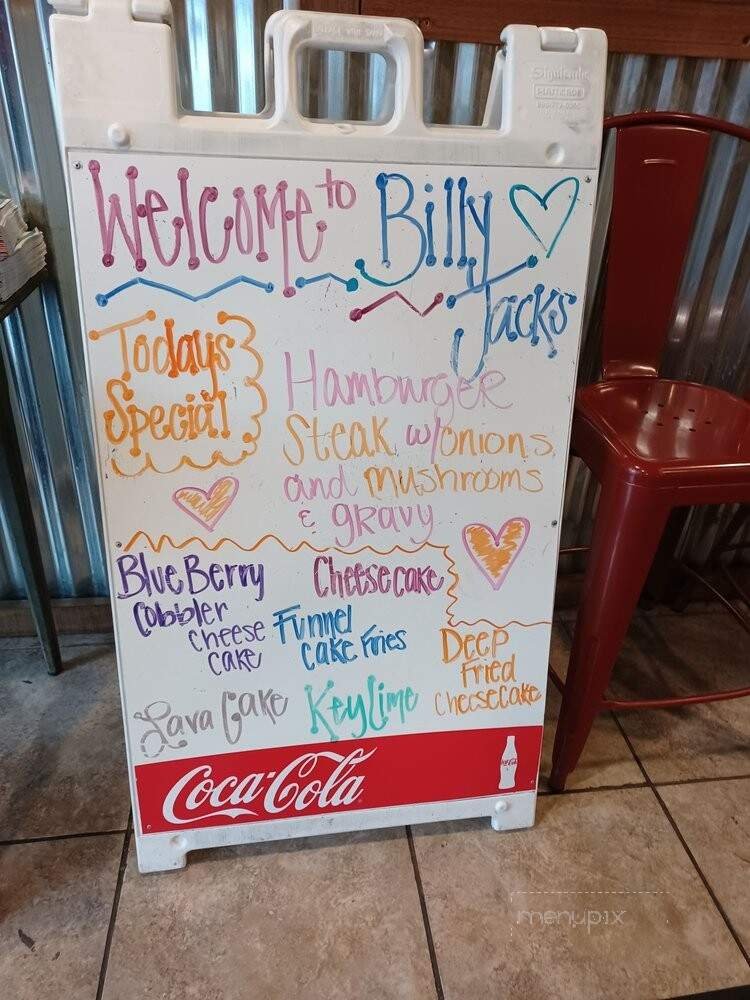 Welcome to Billy
Jacks
Todays
Special
Hamburger
Steak w/onions
and mushrooms
& gravy
BlueBerry
Cobbler
cheese
cake
Cheesecake
Funnel
cake Fries
Deep
Fried
Cheesecake
Lava Cake
Key lime
Coca-Cola
menupix